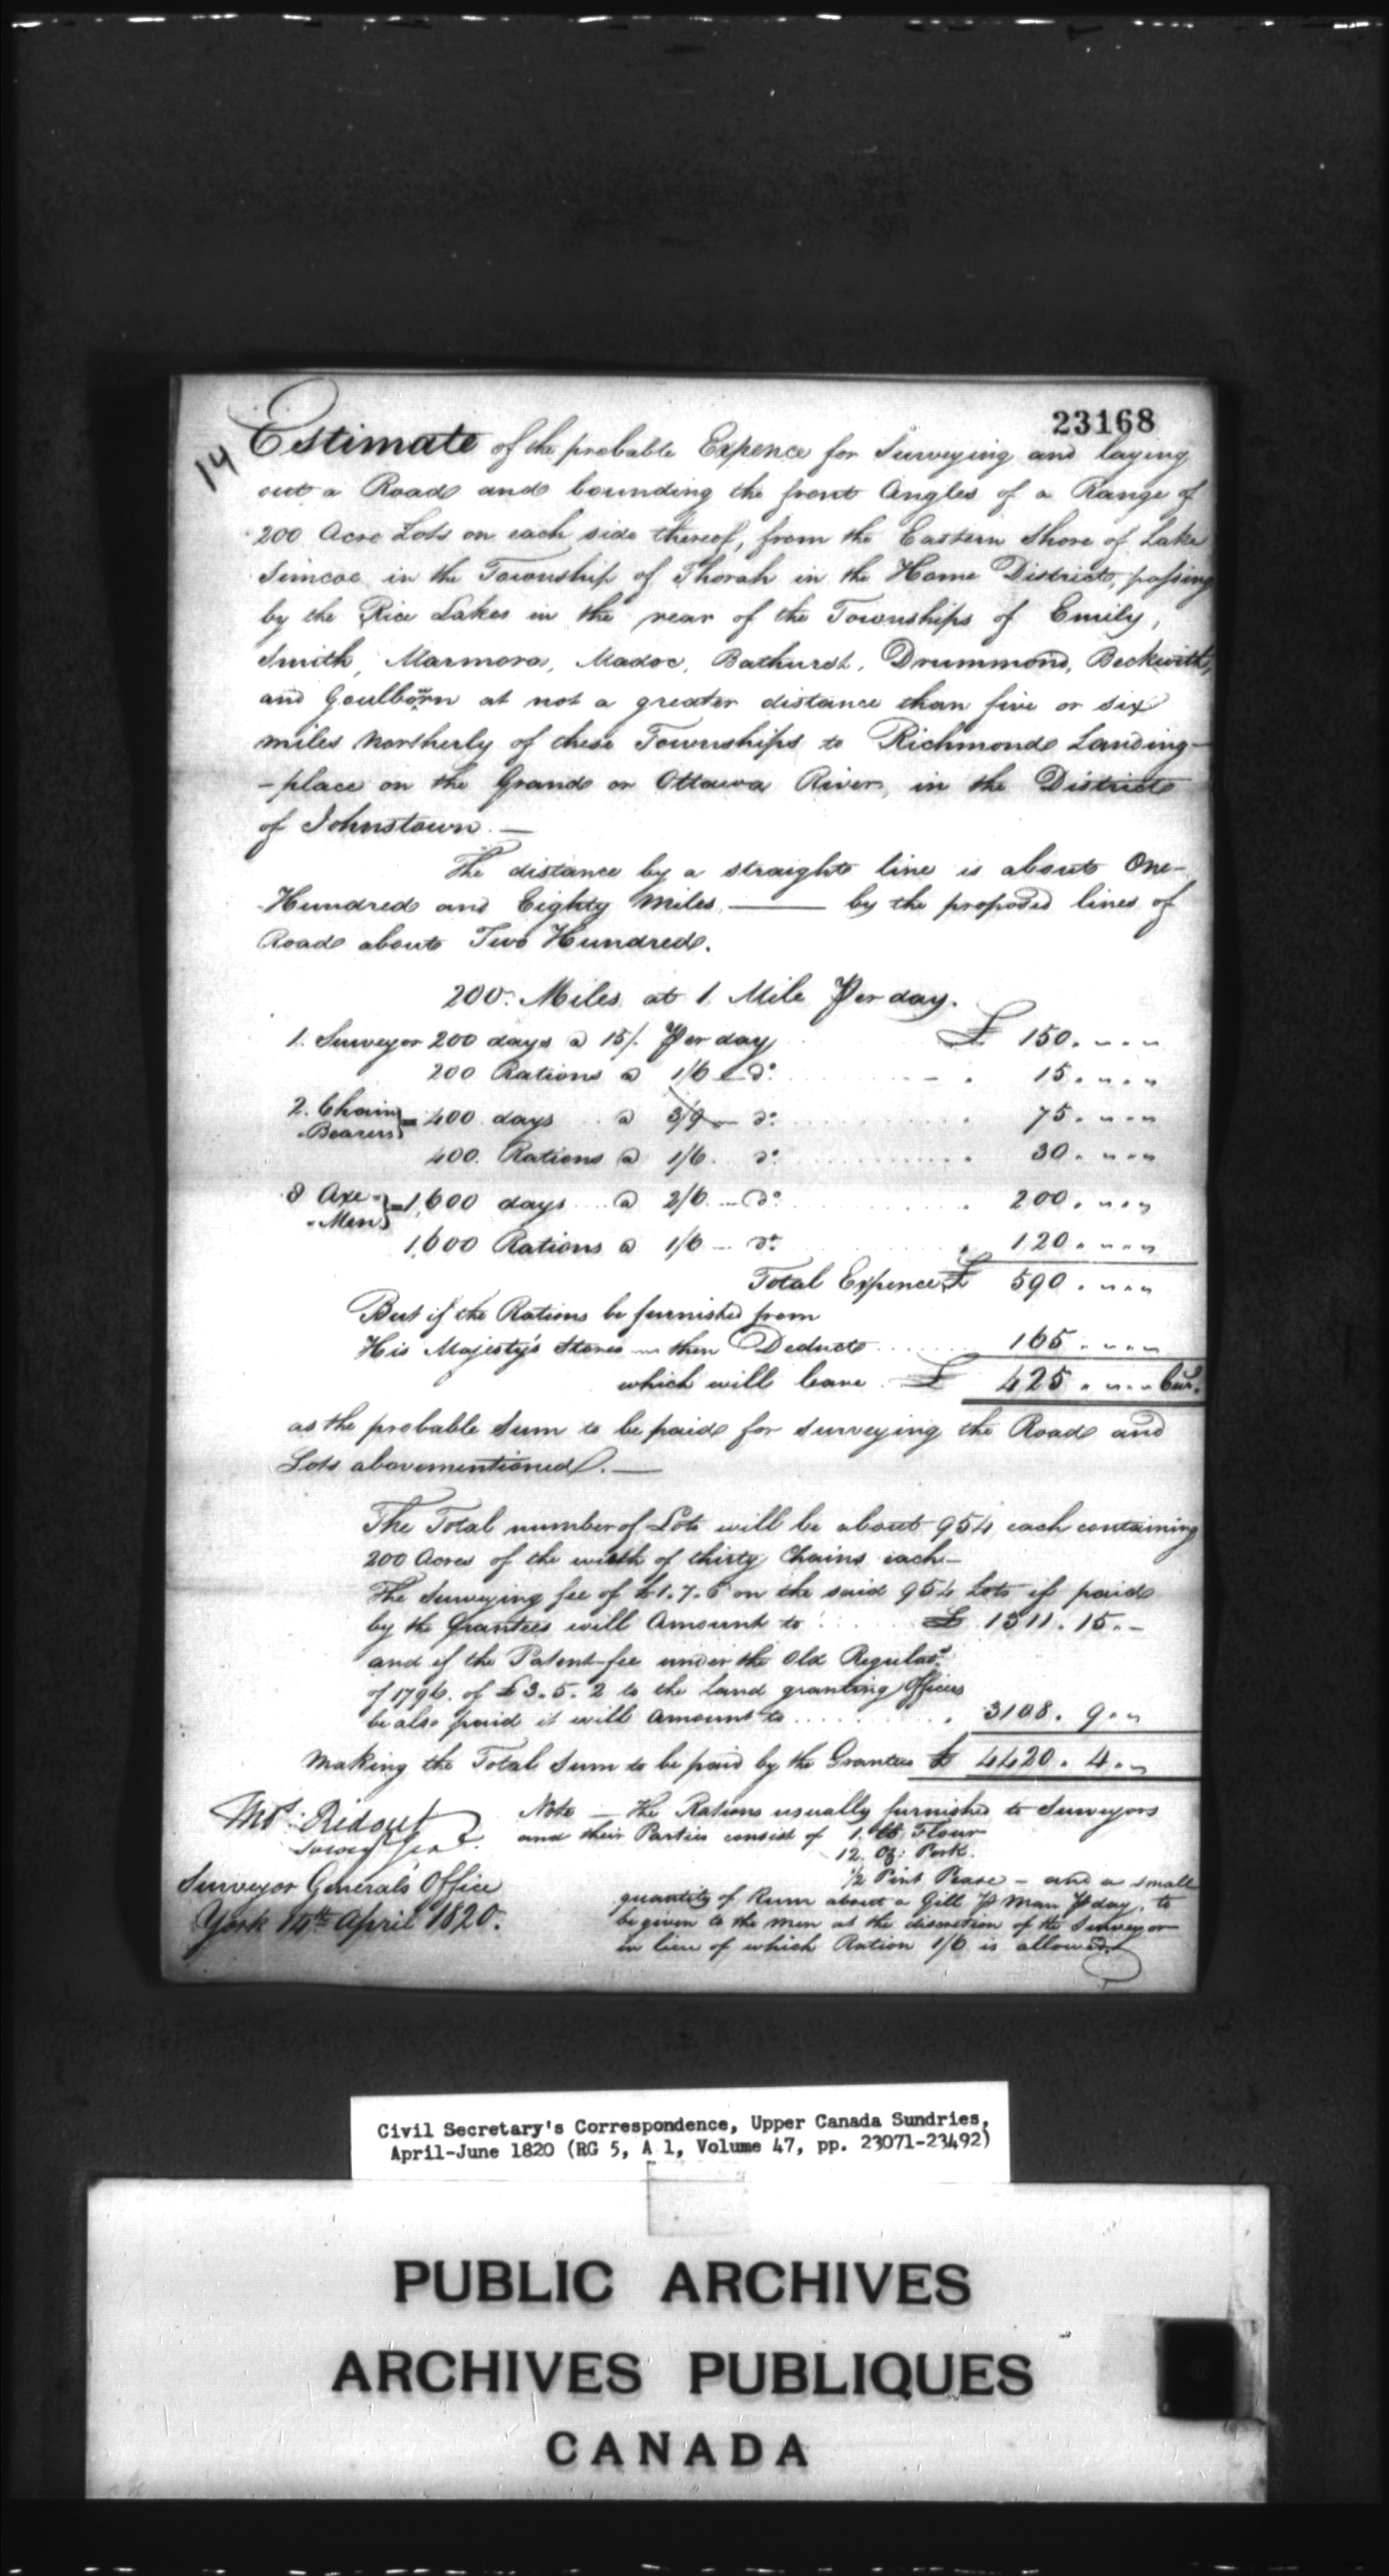 23168
14
Estimate of the probable Expence for Surveying and laying
out a Road and bounding the front Angles of a Range of
200 Acre Lots on each side thereof, from the Eastern Shore of Lake
Simcoe in the Township of Thorah in the Home District, passing
by the Rice Lakes in the rear of the Townships of Emily,
Smith, Marmora, Madoc, Bathurst, Drummond, Beckwith,
and Goulborn at not a greater distance than five or six
miles Northerly of these Townships to Richmond Landing-
-place on the Grand or Ottawa River, in the District
of Johnstown. —
The distance by a straight line is about One-
Hundred and Eighty Miles — by the proposed lines of
Road about Two Hundred.
200. Miles at 1 Mile Per day.
1. Surveyor 200 days @ 15/. Per day £ 150. " . "
200 Rations @ 1/6 — do. 15. " . "
2. Chain Bearers } = 400 days @ 3/9 — do. 75. " . "
400. Rations @ 1/6. do. 30. " . "
8 Axe-Men } = 1,600 days @ 2/6 — do. 200. " . "
1,600 Rations @ 1/6 — do. 120. " . "
Total Expence £ 590. " . "
But if the Rations be furnished from
His Majesty's Stores — then Deduct 165. " . "
which will leave £ 425. " . " Cur.
as the probable Sum to be paid for Surveying the Road and
Lots abovementioned. —
The Total number of Lots will be about 954 each containing
200 Acres of the width of thirty Chains each —
The Surveying fee of £1.7.6 on the said 954 Lots if paid
by the Grantees will Amount to £ 1311. 15. -
and if the Patent-fee under the Old Regulatns
of 1796. of £3.5.2 to the Land granting Officers
be also paid it will Amount to 3108. 9. "
Making the Total Sum to be paid by the Grantees £ 4420. 4. "
Thos: Ridout
Survey Genl.
Surveyor General's Office
York 14th April 1820.
Note — The Rations usually furnished to Surveyors
and their Parties consist of 1. lb Flour
12. Oz: Pork.
1/2 Pint Pease - and a small
quantity of Rum about a Gill P Man P day, to
be given to the men at the discretion of the Surveyor
in lieu of which Ration 1/6 is allowed
Civil Secretary's Correspondence, Upper Canada Sundries,
April-June 1820 (RG 5, A 1, Volume 47, pp. 23071-23492)
PUBLIC ARCHIVES
ARCHIVES PUBLIQUES
CANADA